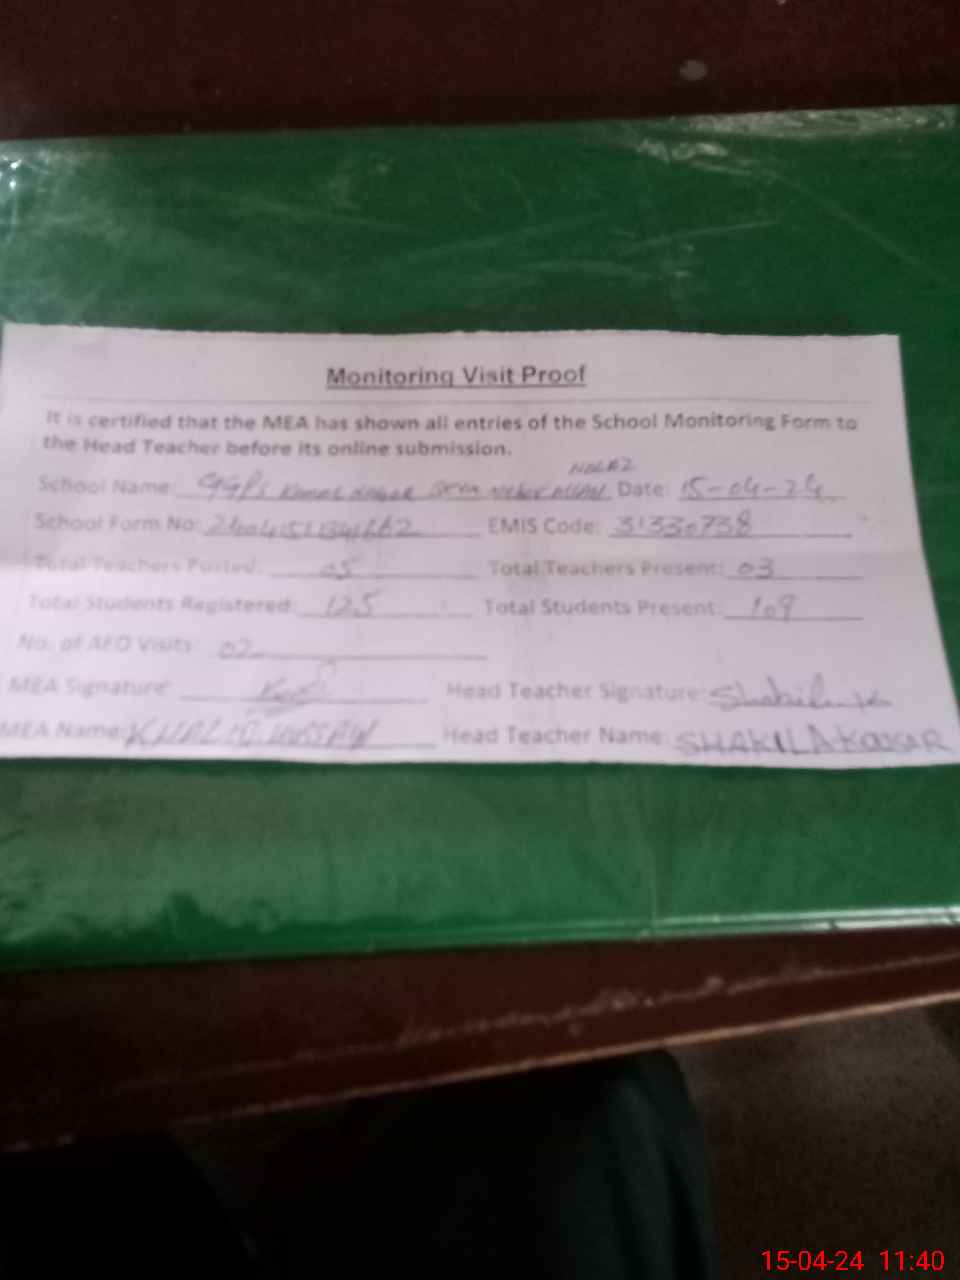 Monitoring Visit Proof
It is certified that the MEA has shown all entries of the School Monitoring Form to
the Head Teacher before its online submission.
School Name: GGPS Date: 15-04-24
School Form No: EMIS Code: 31330738
Total Teachers Posted: 05 Total Teachers Present: 03
Total Students Registered: 125 Total Students Present: 109
No. of AEO Visits: 02
MEA Signature: Head Teacher Signature:
MEA Name: KHALID HUSSAIN Head Teacher Name: SHAKILA
15-04-24 11:40